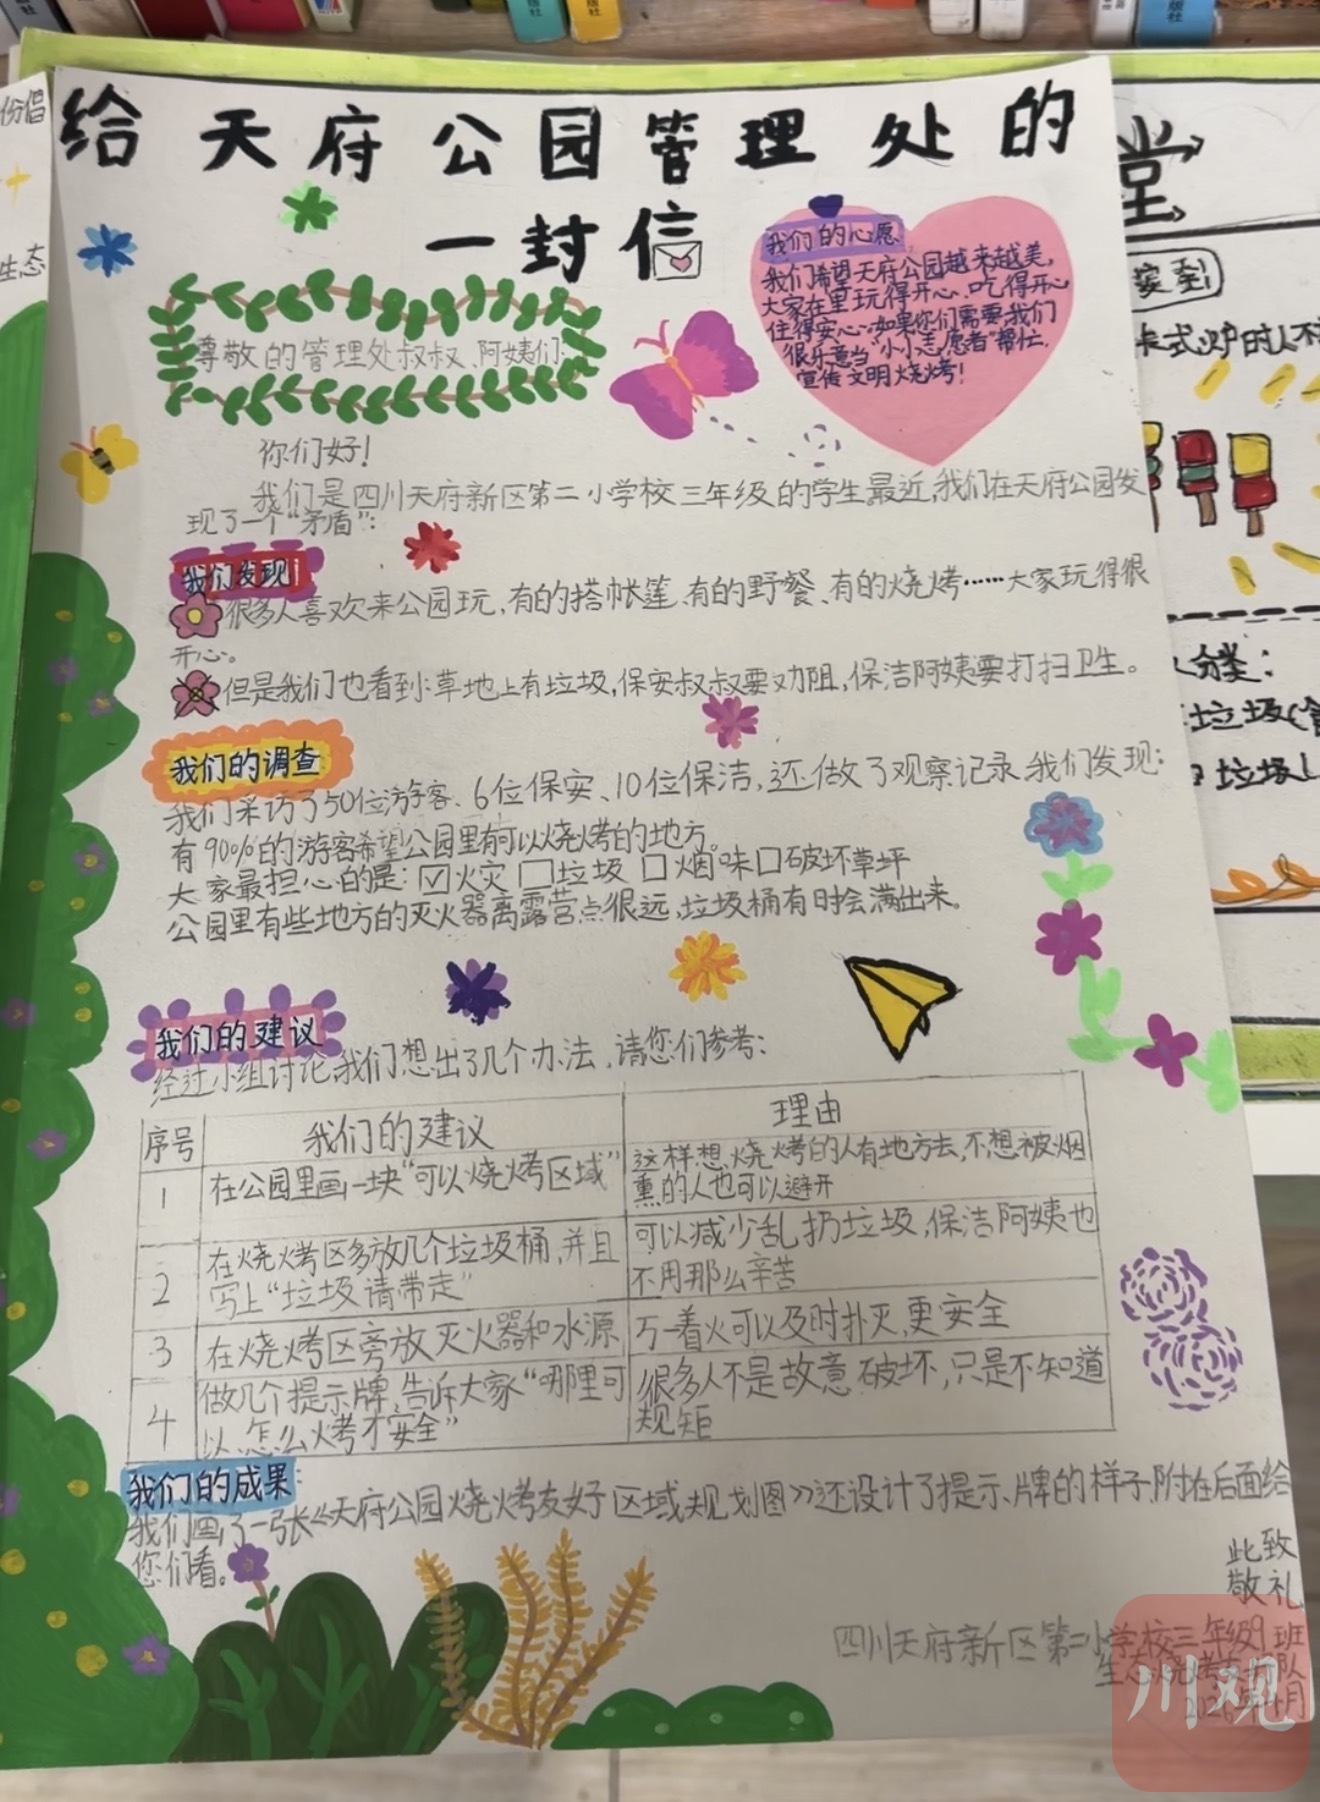 给天府公园管理处的
一封信
我们的心愿
我们希望天府公园越来越美,
大家在里玩得开心、吃得开心
住得安心…如果你们需要我们
很乐意当“小小志愿者”帮忙.
宣传文明烧烤!
尊敬的管理处叔叔、阿姨们:
你们好!
我们是四川天府新区第二小学校三年级的学生,最近,我们在天府公园发
现了一个“矛盾”:
我们发现
很多人喜欢来公园玩,有的搭帐篷、有的野餐、有的烧烤……大家玩得很
开心。
但是我们也看到:草地上有垃圾,保安叔叔要劝阻,保洁阿姨要打扫卫生。
我们的调查
我们采访了50位游客、6位保安、10位保洁,还做了观察记录,我们发现:
有90%的游客希望公园里有可以烧烤的地方。
大家最担心的是:☑火灾 □垃圾 □烟味□破坏草坪
公园里有些地方的灭火器离露营点很远,垃圾桶有时会满出来。
我们的建议
经过小组讨论,我们想出了几个办法,请您们参考:
序号 我们的建议 理由
1 在公园里画一块“可以烧烤区域” 这样想烧烤的人有地方去,不想被烟
熏的人也可以避开
2 在烧烤区多放几个垃圾桶,并且
写上“垃圾请带走”
可以减少乱扔垃圾,保洁阿姨也
不用那么辛苦
3 在烧烤区旁放灭火器和水源 万一着火可以及时扑灭,更安全
4 做几个提示牌,告诉大家“哪里可
以、怎么烤才安全”
很多人不是故意破坏,只是不知道
规矩
我们的成果:
我们画了一张《天府公园烧烤友好区域规划图》还设计了提示牌的样子,附在后面给
您们看。
此致
敬礼
四川天府新区第二小学校三年级9班
川观
份倡
生态
堂
卡式炉的人不
分类:
垃圾
垃圾